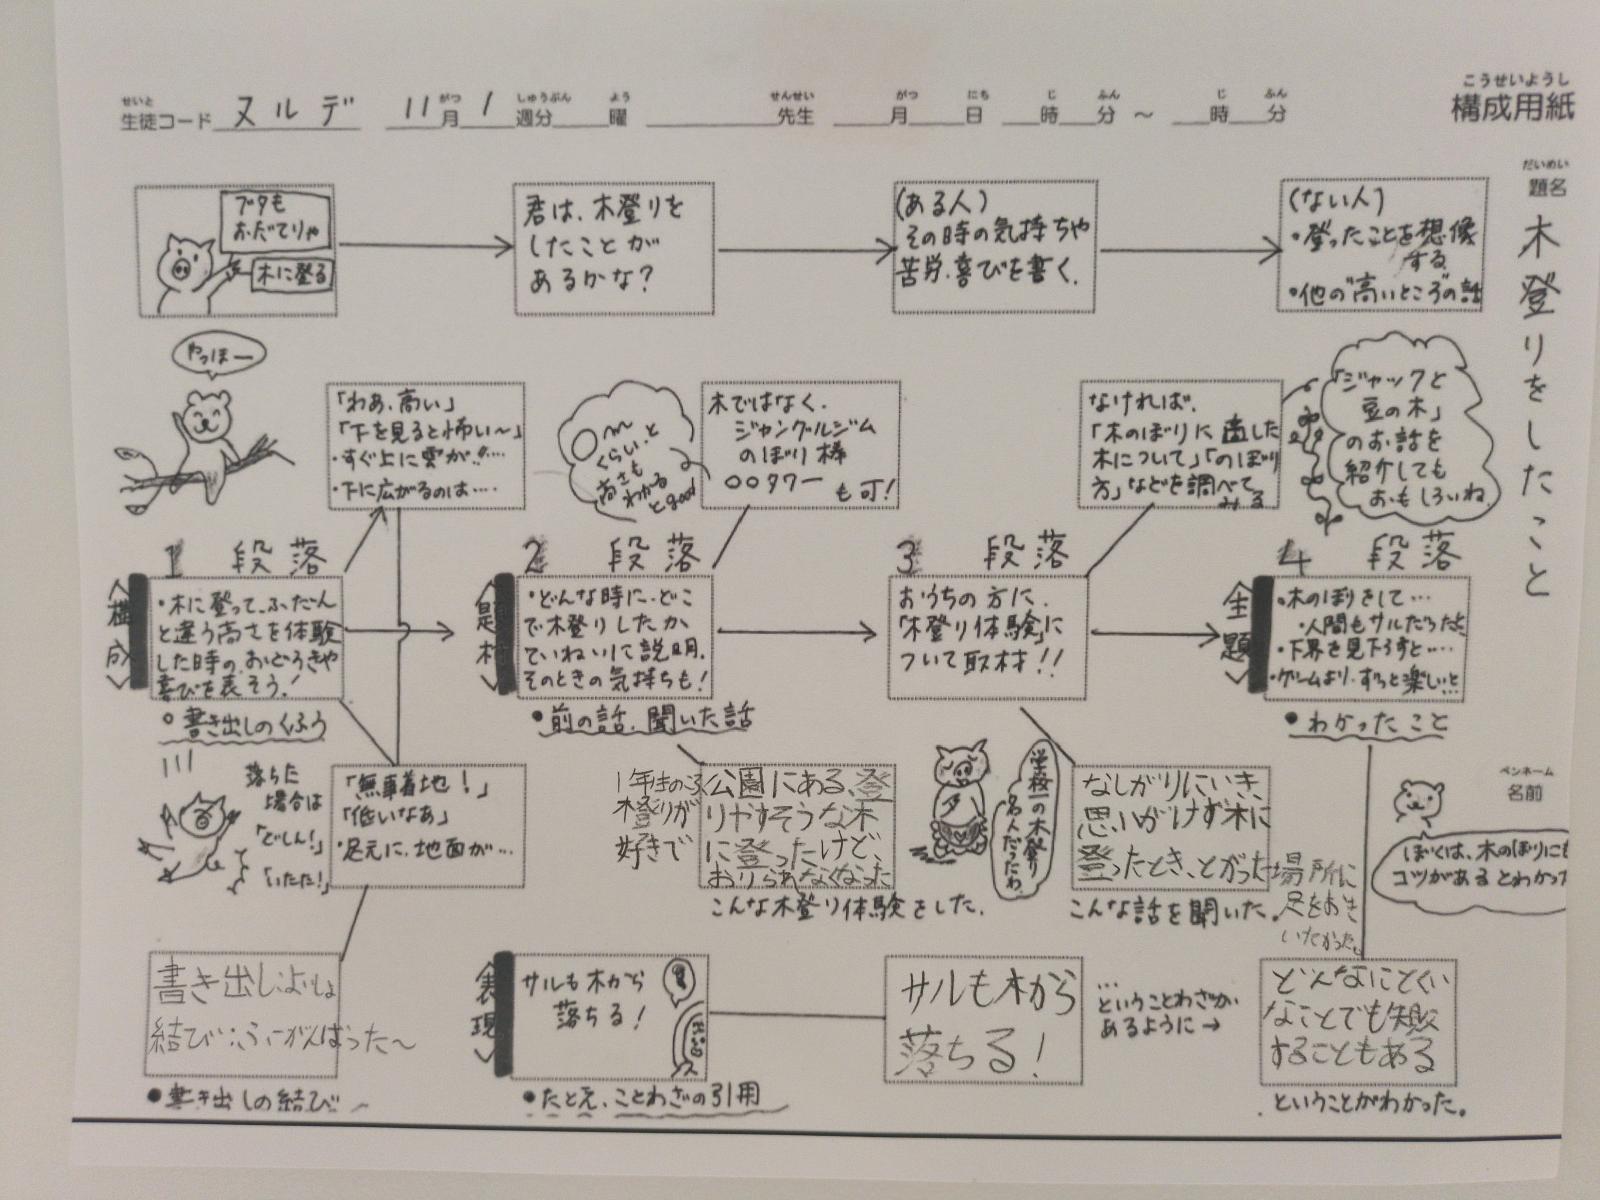 せいと
生徒コード ヌルデ
がつ
11月
しゅうぶん
1週分
よう
曜
せんせい
先生
がつ
月
にち
日
じ
時
ふん
分～
じ
時
ふん
分
こうせいようし
構成用紙
だいめい
題名
木登りをしたこと
ブタも
おだてりゃ
木に登る
君は、木登りを
したことが
あるかな？
(ある人)
その時の気持ちや
苦労、喜びを書く。
(ない人)
・登ったことを想像
する
・他の"高いところ"の話
やっほー
「わあ、高い」
「下を見ると怖い～」
・すぐ上に雲が!!…
・下に広がるのは…
くらい、と
高さも
わかる
とgood
木ではなく、
ジャングルジム
のぼり棒
○○タワー
も可！
なければ、
「木のぼりに適した
木について」「のぼり
方」などを調べて
みる
「ジャックと
豆の木」
のお話を
紹介しても
おもしろいね
1段落
〈構成〉
・木に登って、ふだん
と違う高さを体験
した時の、おどろきや
喜びを表そう！
○書き出しのくふう
2段落
〈題材〉
・どんな時に、どこ
で木登りしたか
ていねいに説明。
そのときの気持ちも！
●前の話、聞いた話
3段落
おうちの方に、
「木登り体験」に
ついて取材!!
4段落
〈主題〉
・木のぼりをして…
・人間もサルだったと
・下界を見下ろすと…
・ゲームより、ずっと楽しいと
●わかったこと
落ちた
場合は
「どしん！」
「いたた！」
「無事着地！」
「低いなあ」
・足元に、地面が…
木登りが
好きで
公園にある、登
りやすそうな木
に登ったけど、
おりられなくなった
こんな木登り体験をした。
学校一の木登り
名人だったわ
なしがりにいき、
思いがけず木に
登ったとき、とがった
場所に
足をおき
いたかった。
こんな話を聞いた。
ペンネーム
名前
ぼくは、木のぼりにも
コツがあるとわかった
書き出し：よいしょ
結び：ふーがんばった～
●書き出しの結び
〈表現〉
サルも木から
落ちる！
●たとえ、ことわざの引用
サルも木から
落ちる！
…
ということわざが
あるように→
どんなにとくい
なことでも失敗
することもある
ということがわかった。